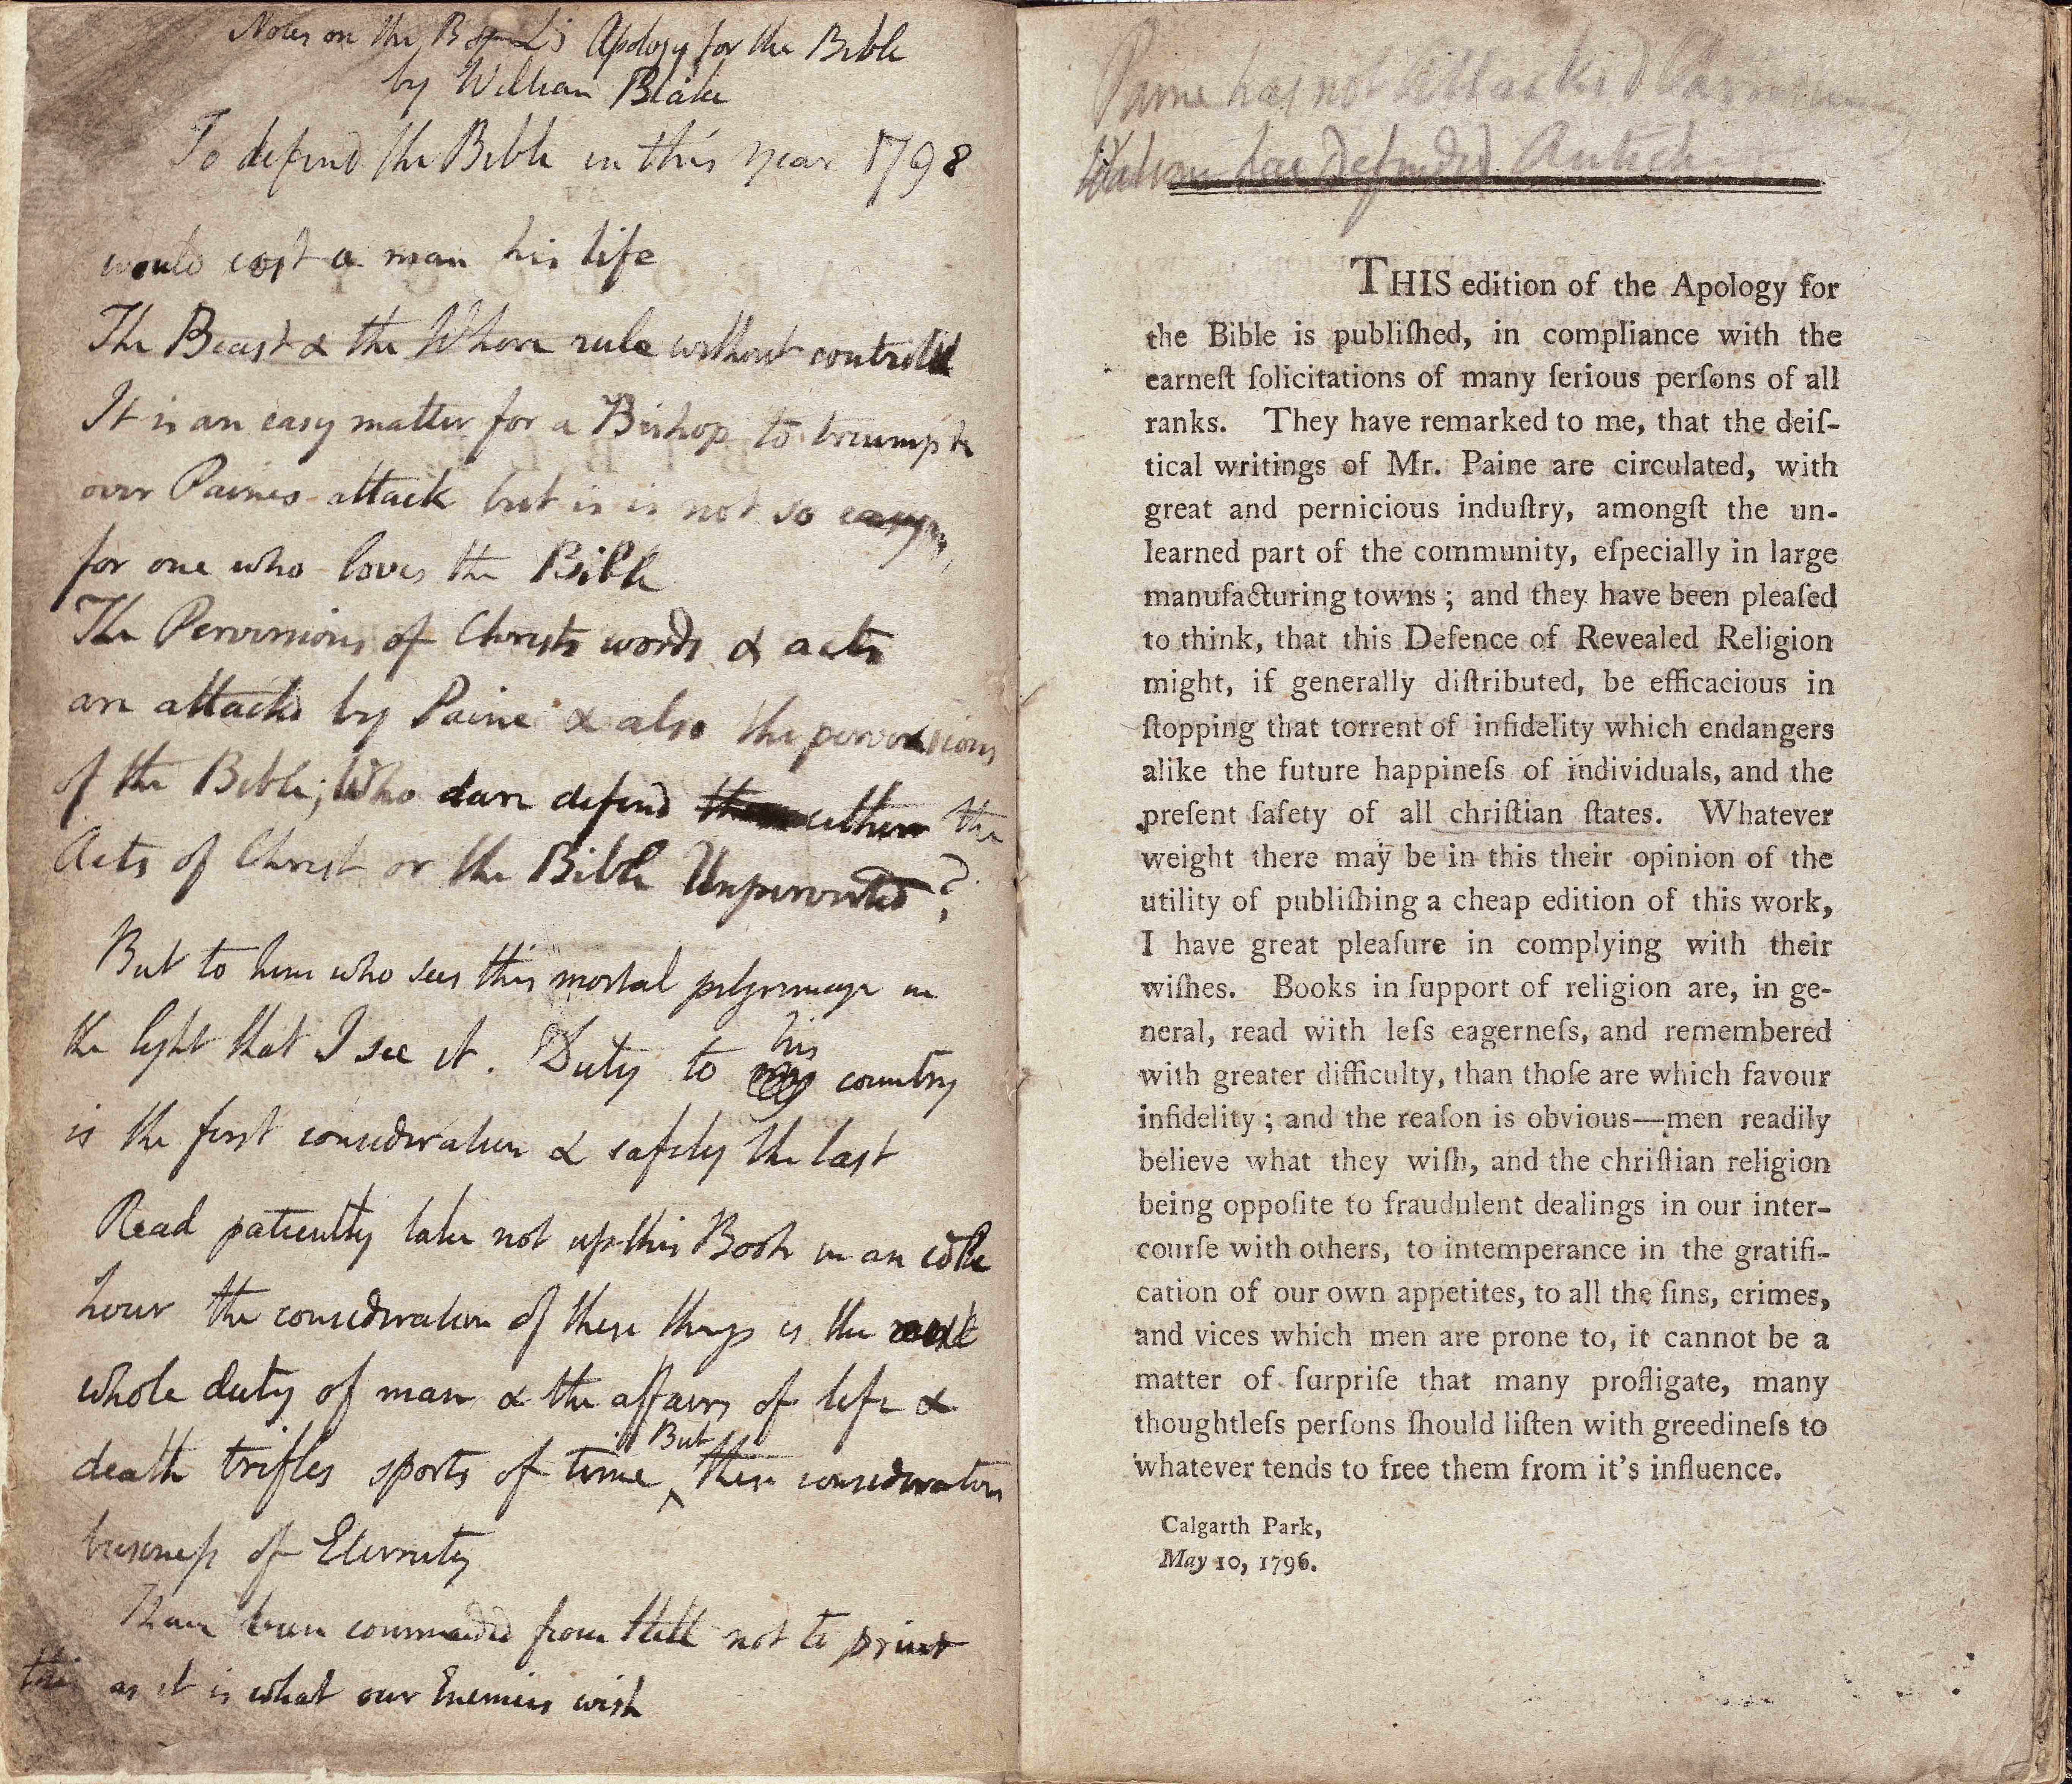 Notes on the B of L's Apology for the Bible
by William Blake
To defend the Bible in this year 1798
would cost a man his life
The Beast & the Whore rule without control
It is an easy matter for a Bishop to triumph
over Paines attack but is is not so easy
for one who loves the Bible
The Perversions of Christs words & acts
are attackd by Paine & also the perversions
of the Bible; Who dare defend either the
Acts of Christ or the Bible Unperverted?
But to him who sees this mortal pilgrimage in
the light that I see it. Duty to his country
is the first consideration & safety the last
Read patiently take not up this Book in an idle
hour the consideration of these things is the
whole duty of man & the affairs of life &
death trifles sports of time But these considerations
business of Eternity
I have been commanded from Hell not to print
this as it is what our Enemies wish
Paine has not Attacked Christianity
Watson has defended Antichrist
THIS edition of the Apology for
the Bible is publiſhed, in compliance with the
earneſt ſolicitations of many ſerious perſons of all
ranks. They have remarked to me, that the deiſ-
tical writings of Mr. Paine are circulated, with
great and pernicious induſtry, amongſt the un-
learned part of the community, eſpecially in large
manufacturing towns; and they have been pleaſed
to think, that this Defence of Revealed Religion
might, if generally diſtributed, be efficacious in
ſtopping that torrent of infidelity which endangers
alike the future happineſs of individuals, and the
preſent ſafety of all chriſtian ſtates. Whatever
weight there may be in this their opinion of the
utility of publiſhing a cheap edition of this work,
I have great pleaſure in complying with their
wiſhes. Books in ſupport of religion are, in ge-
neral, read with leſs eagerneſs, and remembered
with greater difficulty, than thoſe are which favour
infidelity; and the reaſon is obvious—men readily
believe what they wiſh, and the chriſtian religion
being oppoſite to fraudulent dealings in our inter-
courſe with others, to intemperance in the gratifi-
cation of our own appetites, to all the ſins, crimes,
and vices which men are prone to, it cannot be a
matter of ſurpriſe that many profligate, many
thoughtleſs perſons ſhould liſten with greedineſs to
whatever tends to free them from it's influence.
Calgarth Park,
May 10, 1796.